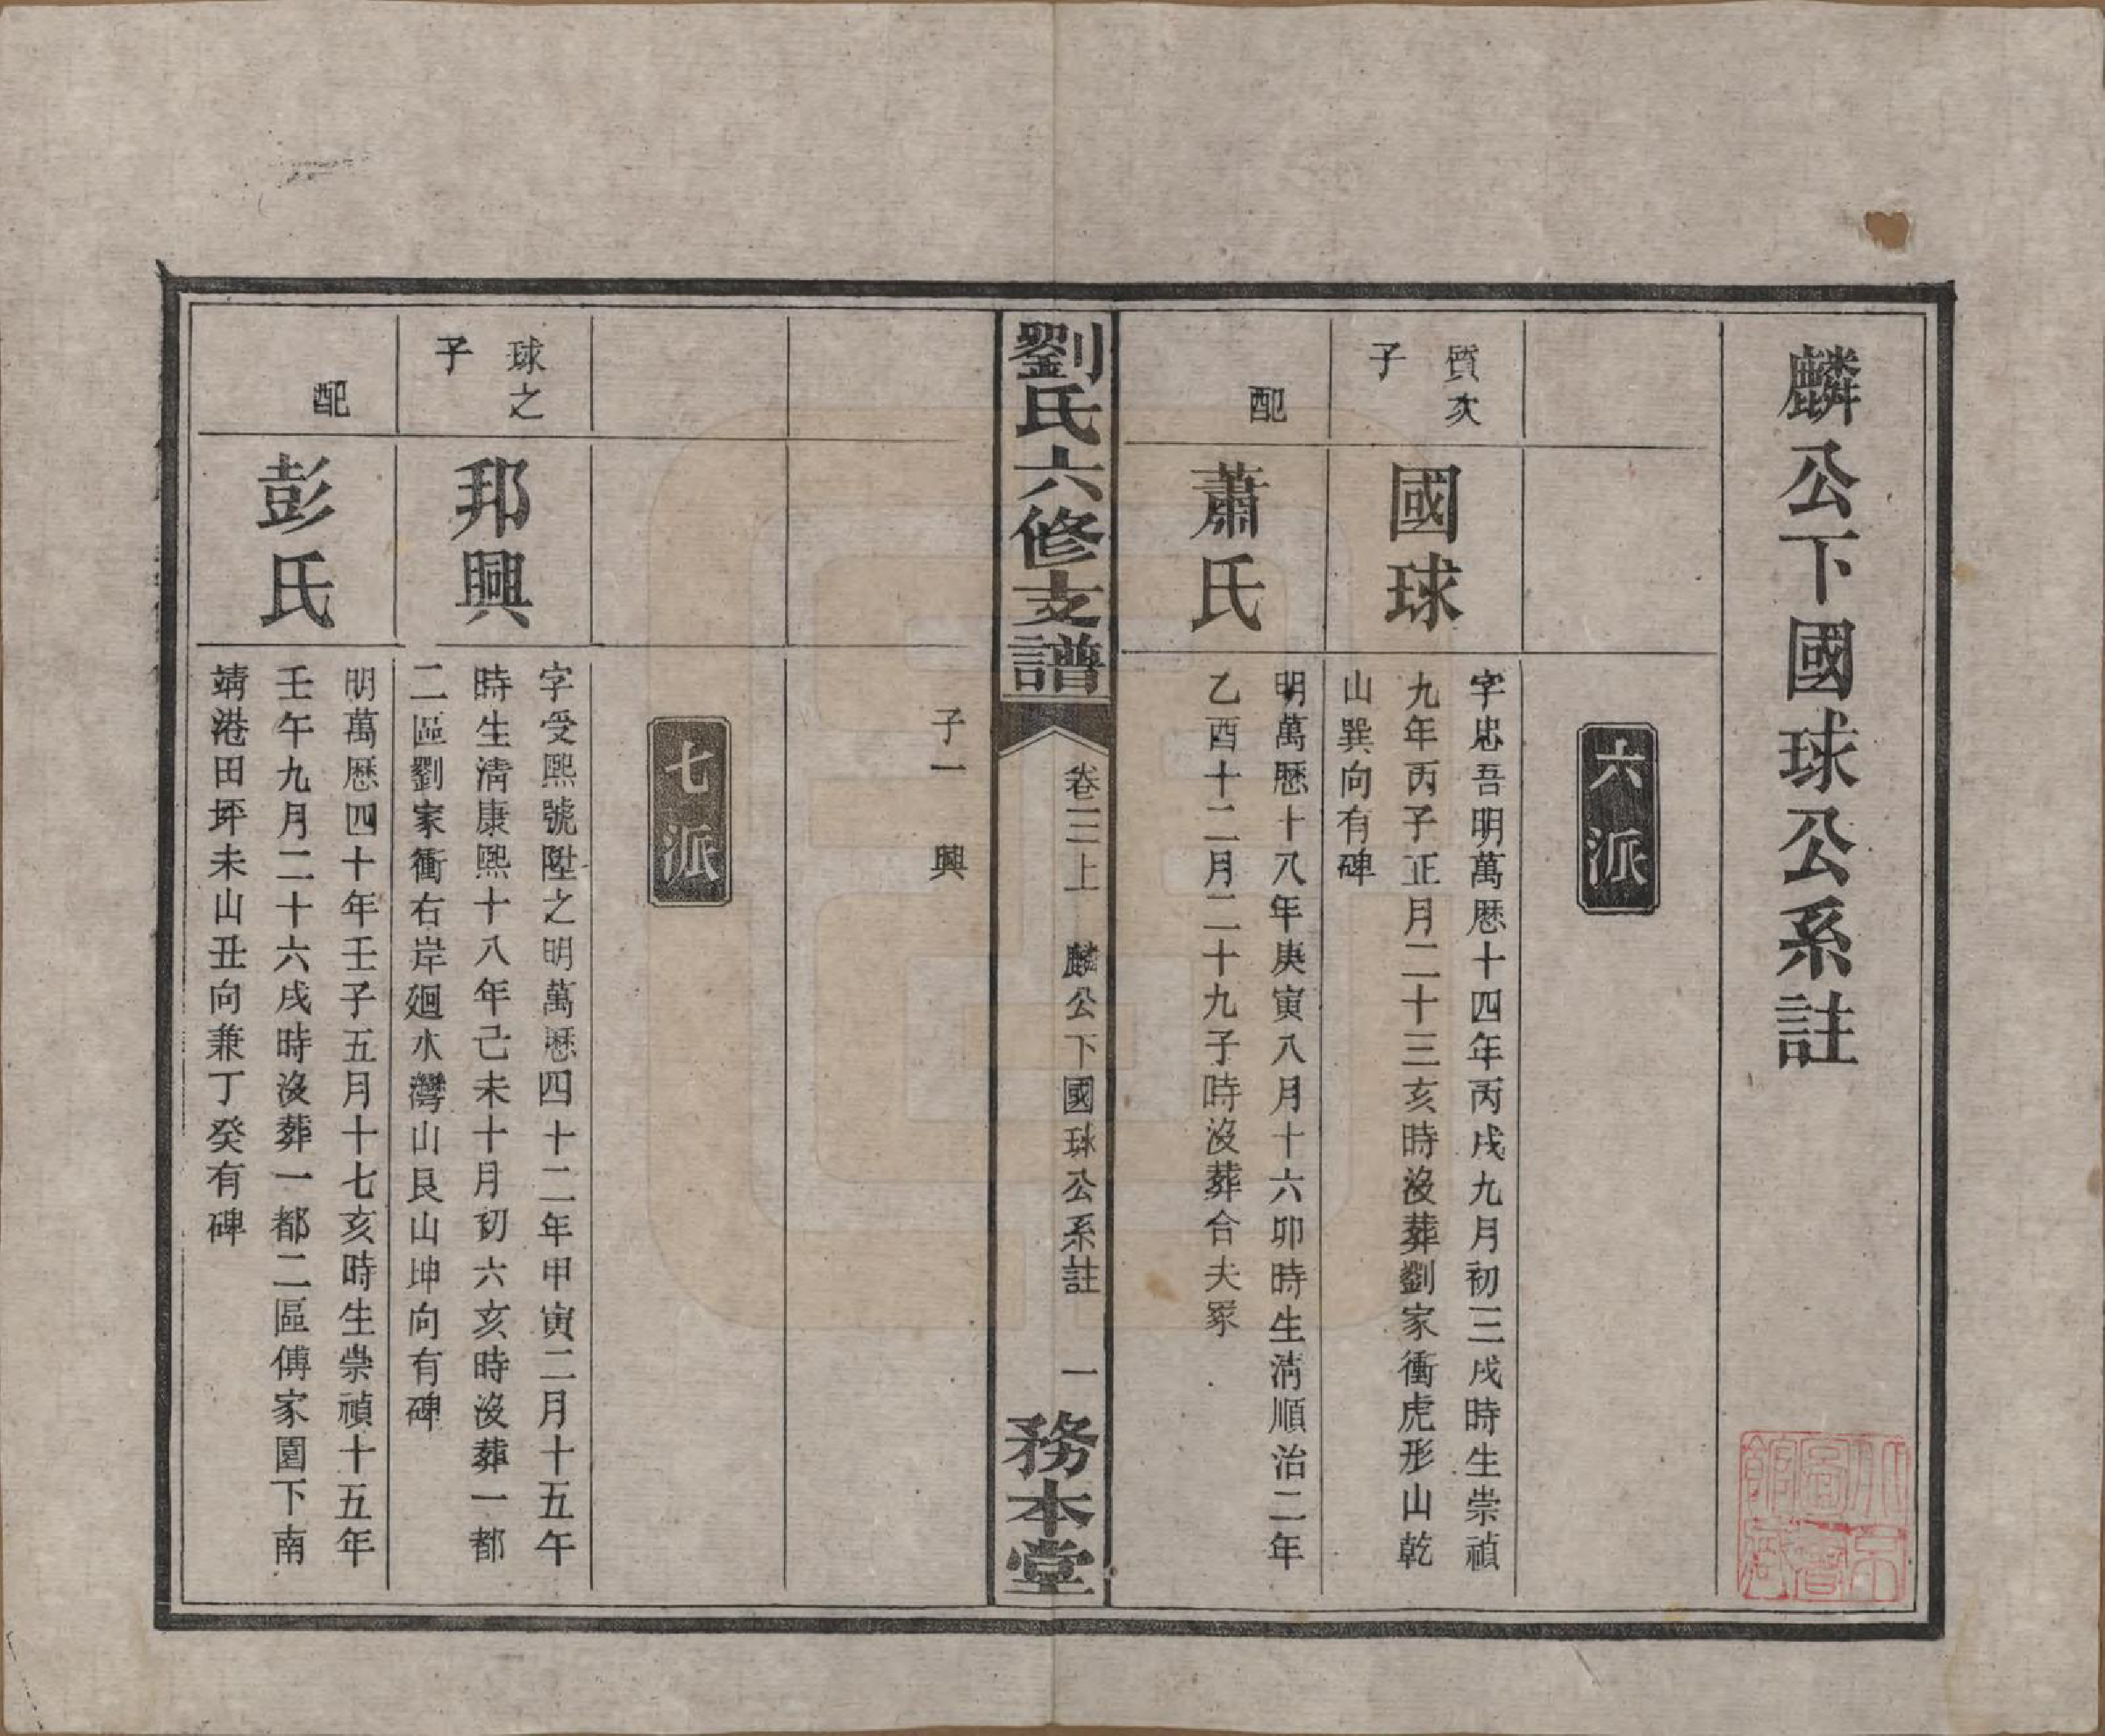 麟公下國球公系註
六派
質次
子
國球
字忠吾明萬歷十四年丙戌九月初三戌時生崇禎
九年丙子正月二十三亥時沒葬劉家衝虎形山乾
山巽向有碑
配
蕭氏
明萬歷十八年庚寅八月十六卯時生淸順治二年
乙酉十二月二十九子時沒葬合夫冢
劉氏六修支譜
卷三上　麟公下國球公系註　一
務本堂
子一　興
七派
球之
子
邦興
字受熙號陞之明萬歷四十二年甲寅二月十五午
時生淸康熙十八年己未十月初六亥時沒葬一都
二區劉家衝右岸廻水灣山艮山坤向有碑
配
彭氏
明萬歷四十年壬子五月十七亥時生崇禎十五年
壬午九月二十六戌時沒葬一都二區傅家園下南
靖港田坪未山丑向兼丁癸有碑
北京
圖書
館藏